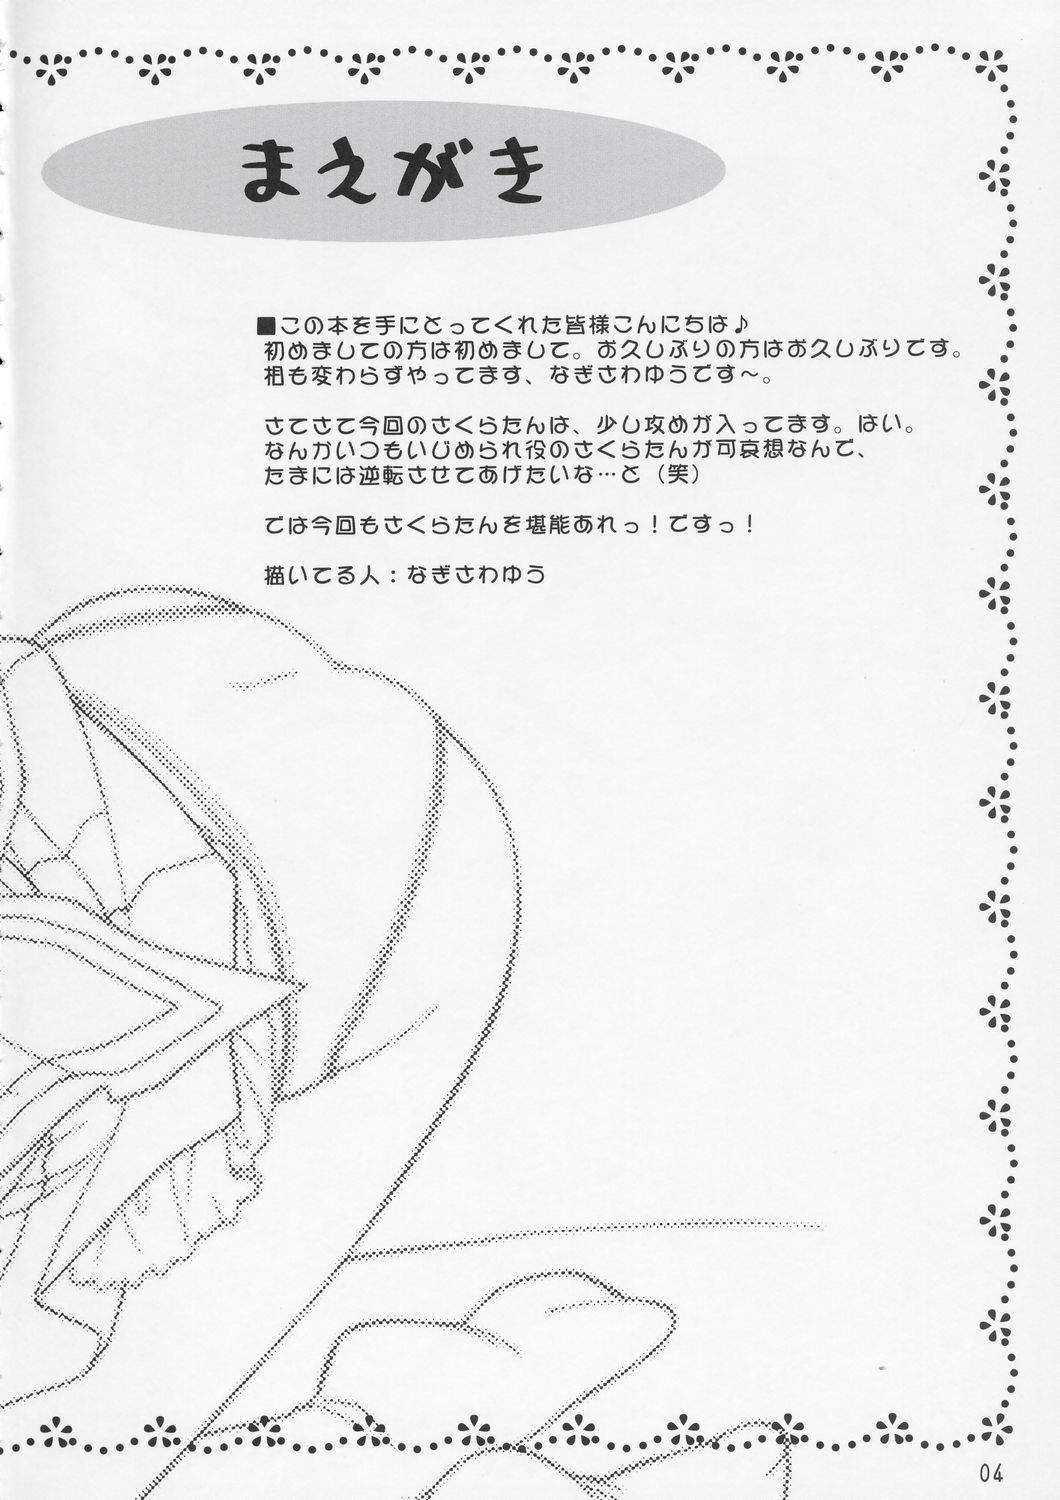 まえがき
■この本を手にとってくれた皆様こんにちは♪
初めましての方は初めまして。お久しぶりの方はお久しぶりです。
相も変わらずやってます、なぎさわゆうです～。
さてさて今回のさくらたんは、少し攻めが入ってます。はい。
なんかいつもいじめられ役のさくらたんが可哀想なんで、
たまには逆転させてあげたいな…と（笑）
では今回もさくらたんを堪能あれっ！ですっ！
描いてる人：なぎさわゆう
04